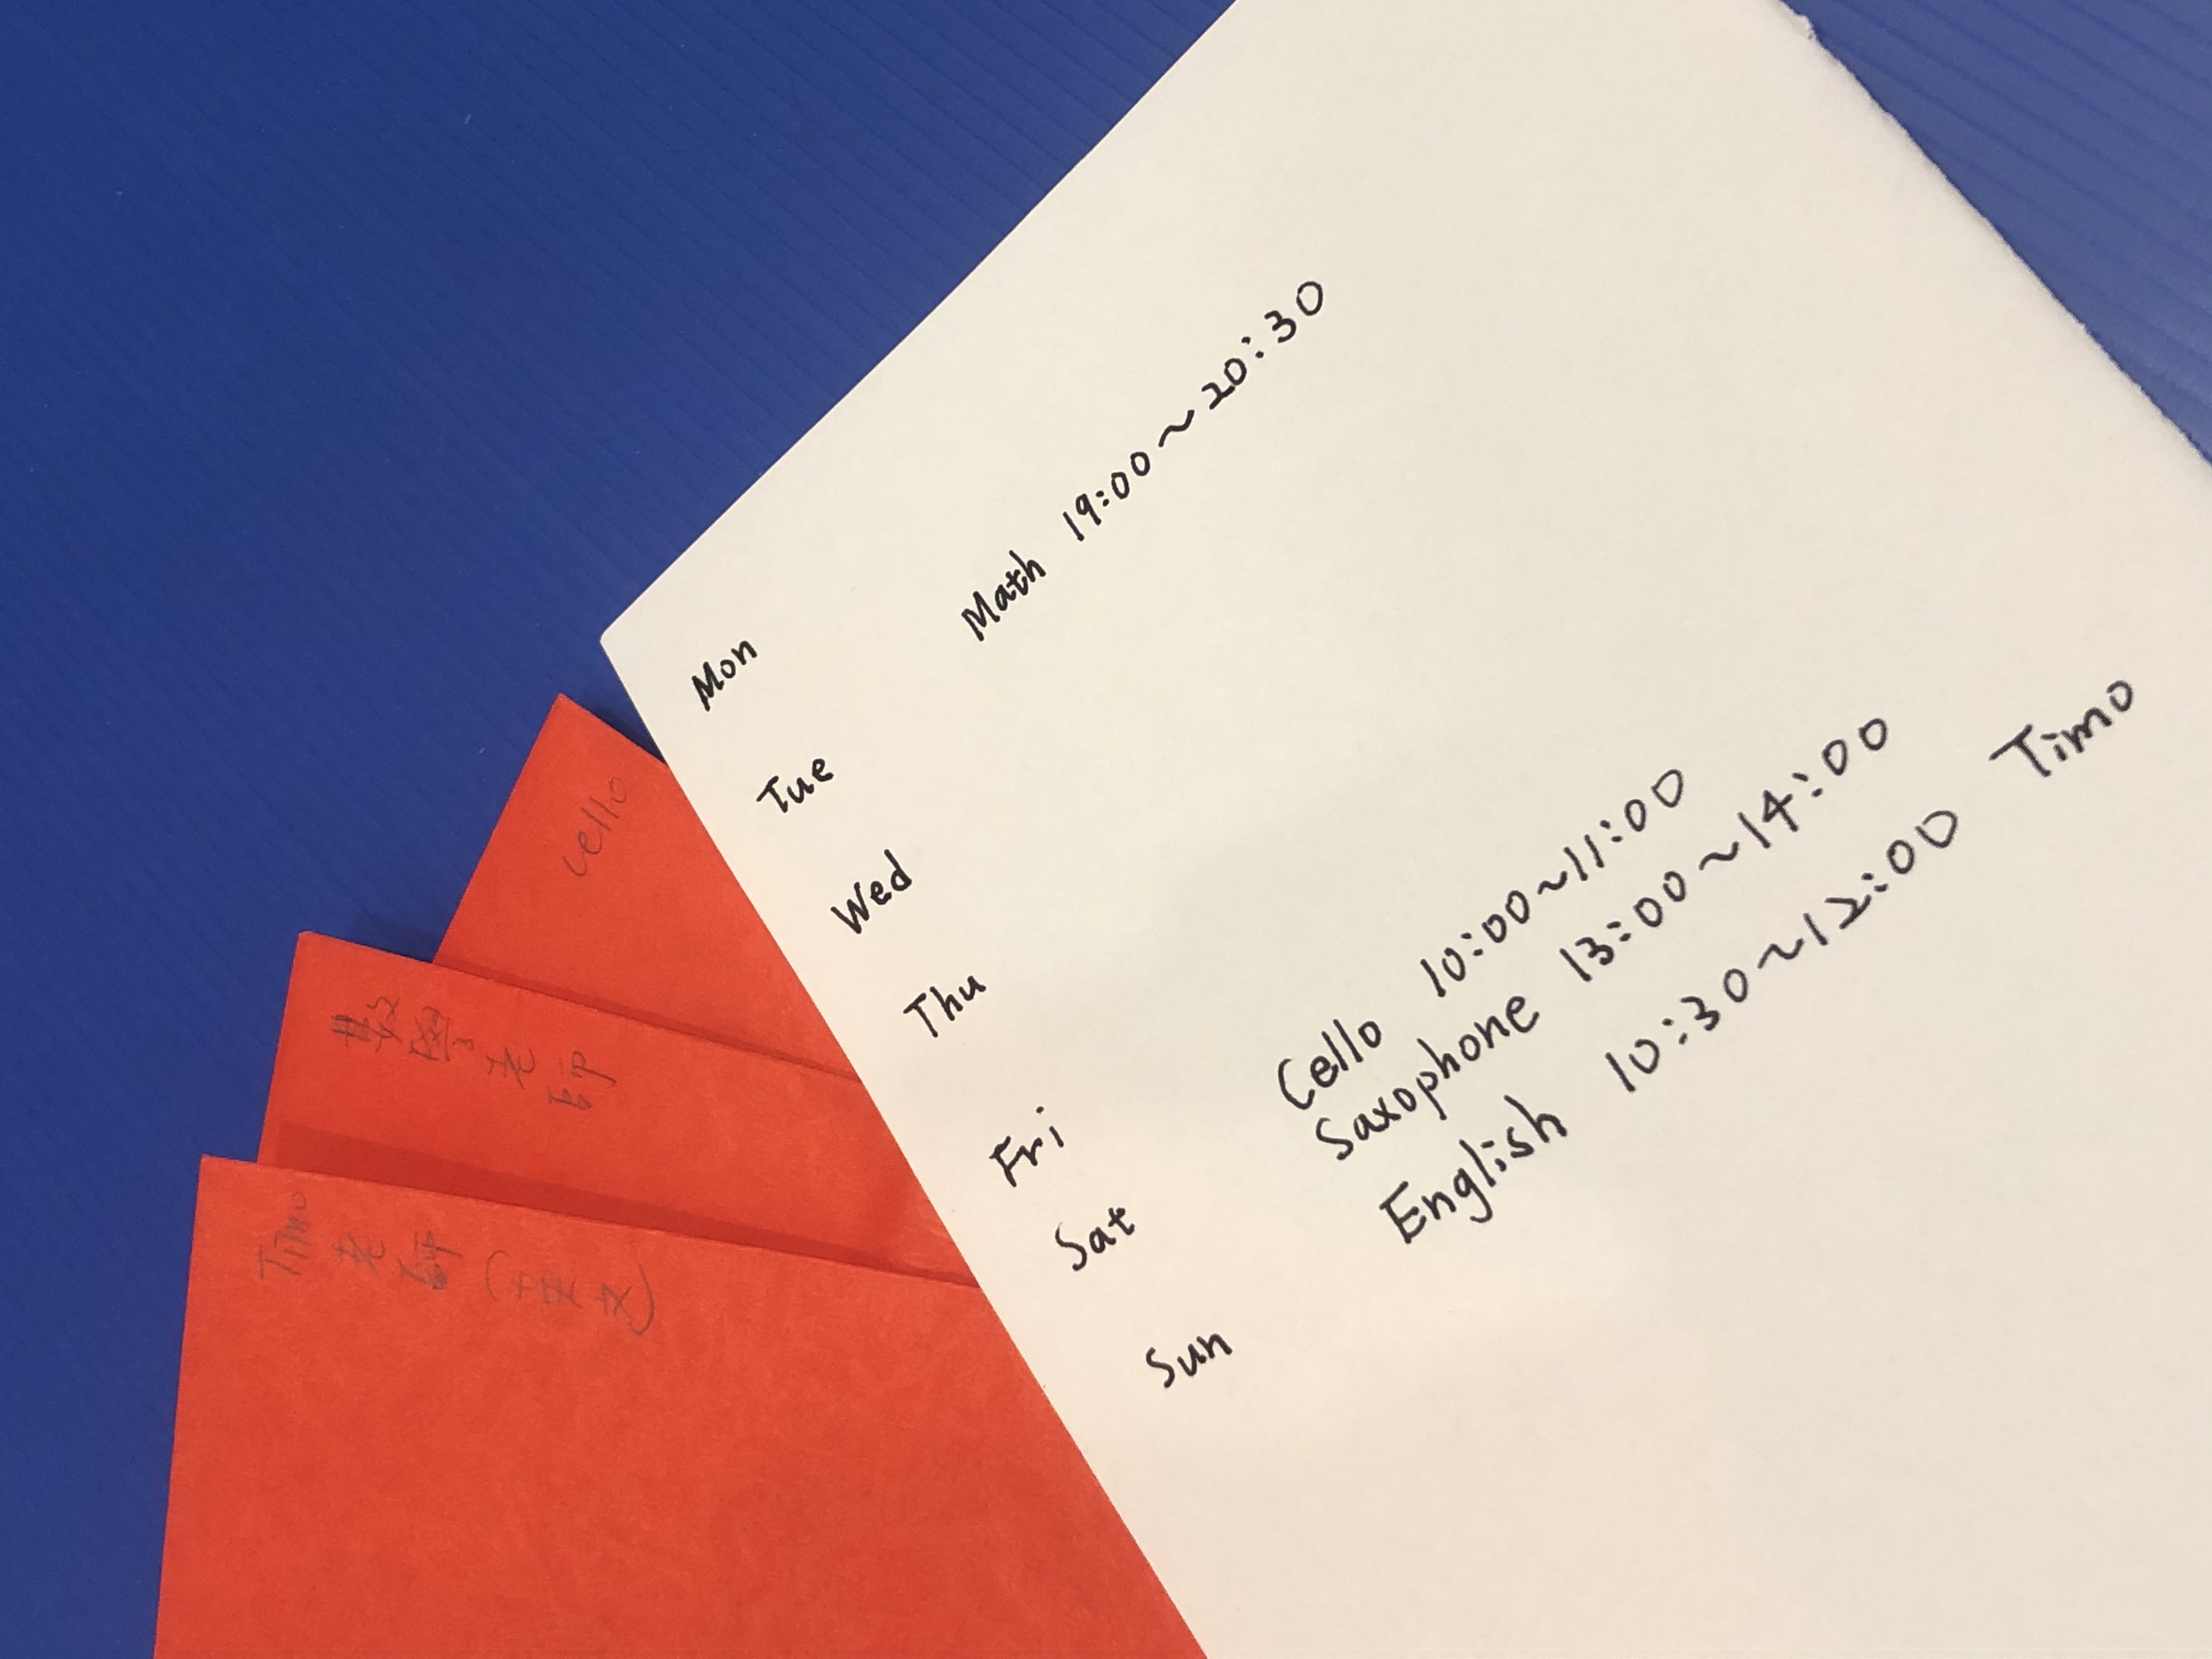 Mon
Tue Math 19:00~20:30
Wed
Thu
Fri
Sat Cello 10:00~11:00
Saxophone 13:00~14:00
Sun English 10:30~12:00 Timo
Cello
數學老師
Timo 老師 (英文)